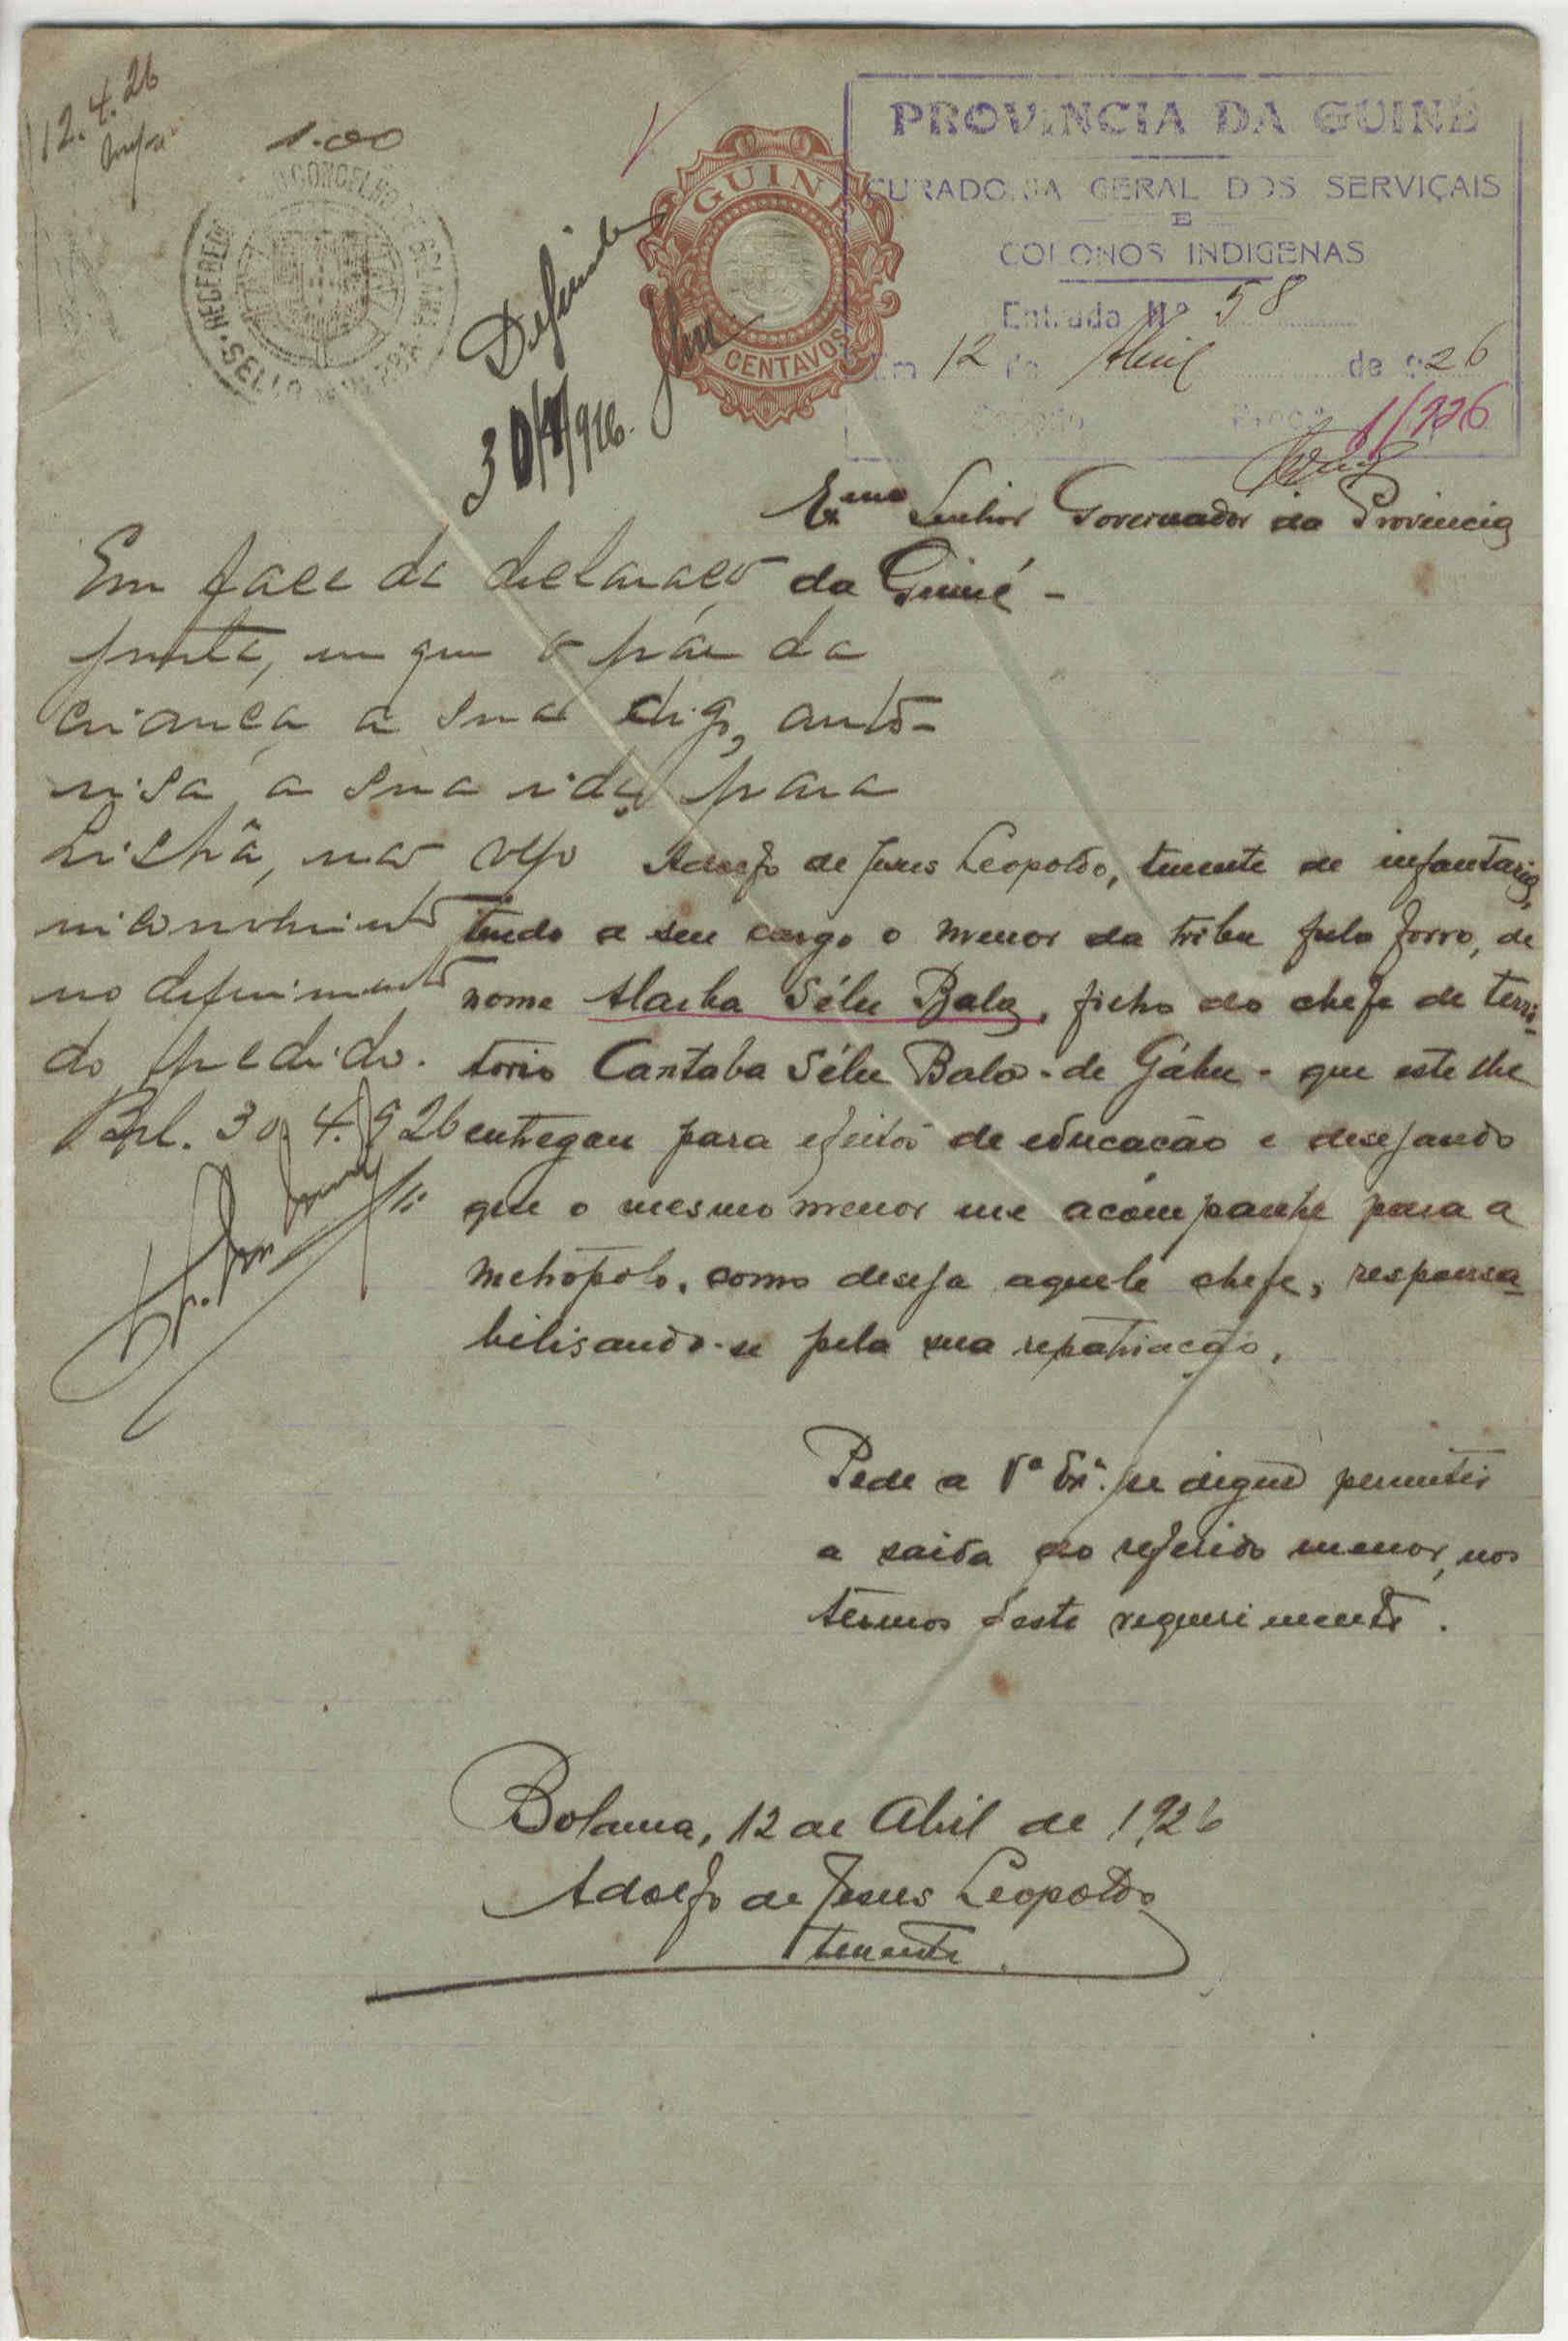 12.4.26
1.00
GUINÉ
CENTAVOS
PROVINCIA DA GUINÉ
CURADORIA GERAL DOS SERVIÇAIS
E
COLONOS INDIGENAS
Entrada Nº 58
Em 12 de Abril de 926
1/926
Deferido
30/4/926.
Exmo Senhor Governador da Provincia
da Guiné -
Em face da declaração
junta, em que o pae da
criança a sua digo, auto-
risa a sua ida para
Lisbôa, não vejo
inconveniente
no deferimento
do pedido.
Bol. 30.4.926
Adolfo de Jesus Leopoldo, tenente de infantaria,
tendo a seu cargo o menor da tribu fula forro, de
nome Alarba Sélu Baló, filho do chefe de terri-
torio Cantaba Sélu Baló - de Gábu - que este lhe
entregou para efeitos de educacão e desejando
que o mesmo menor me acompanhe para a
metropole, como deseja aquele chefe, responsa-
bilisando-se pela sua repatriacção,
Pede a Vª Exª. se digne permitir
a saida do referido menor, nos
termos d'este requerimento.
Bolama, 12 de Abril de 1926
Adolfo de Jesus Leopoldo
tenente